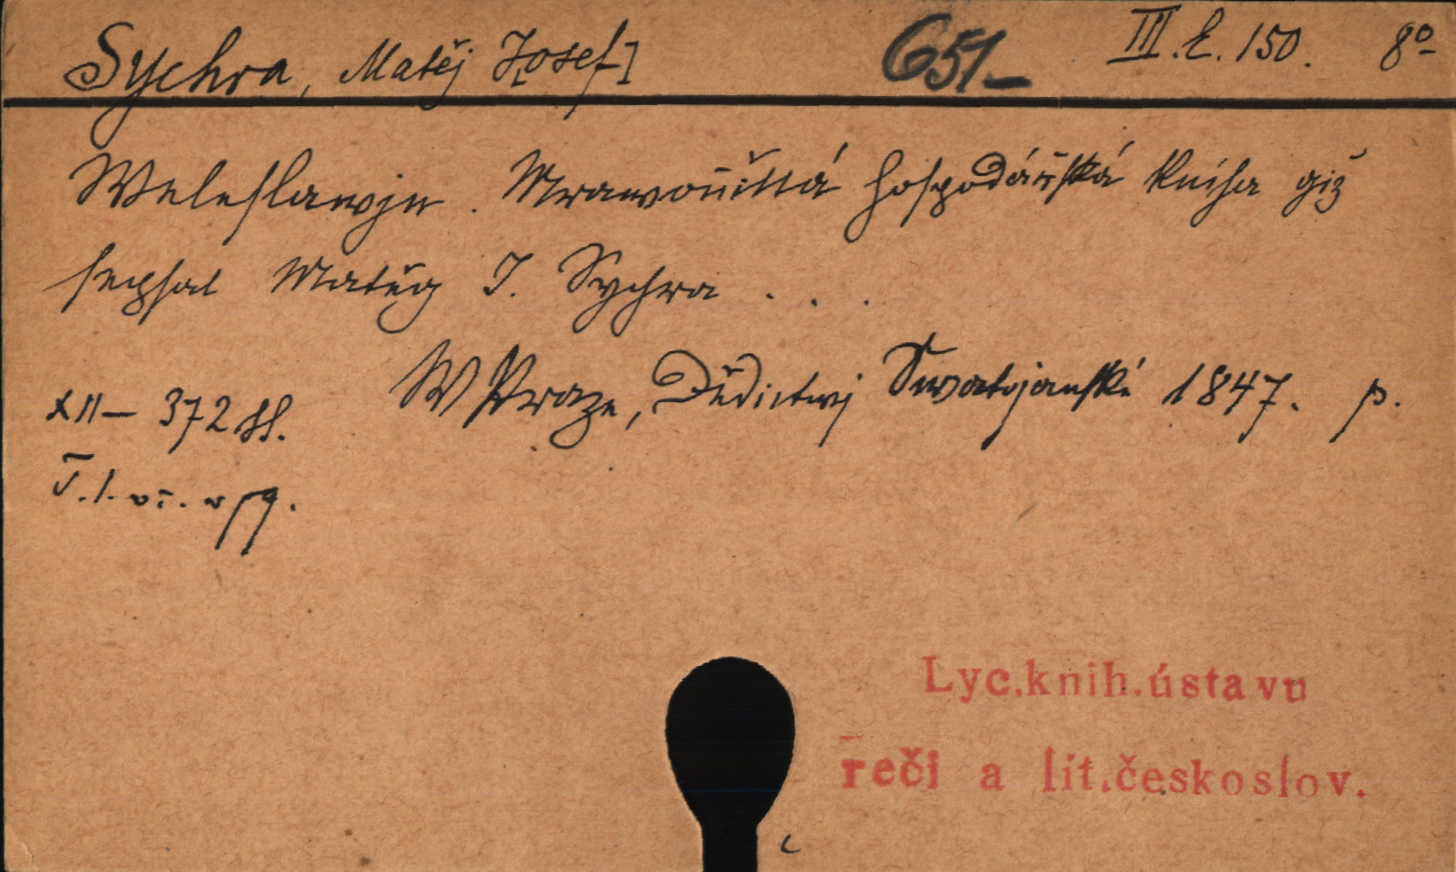 Sychra, Matěj J[osef] 651- III.E.150. 8°
Weleslawjn. Mrawoučná hospodářská kniha giž
sepsal Matěg J. Sychra . . .
W Praze, Dědictwj Swatojanské 1847. p.
XII- 372 ss.
Lyc.knih.ústavu
řeči a lit.českoslov.